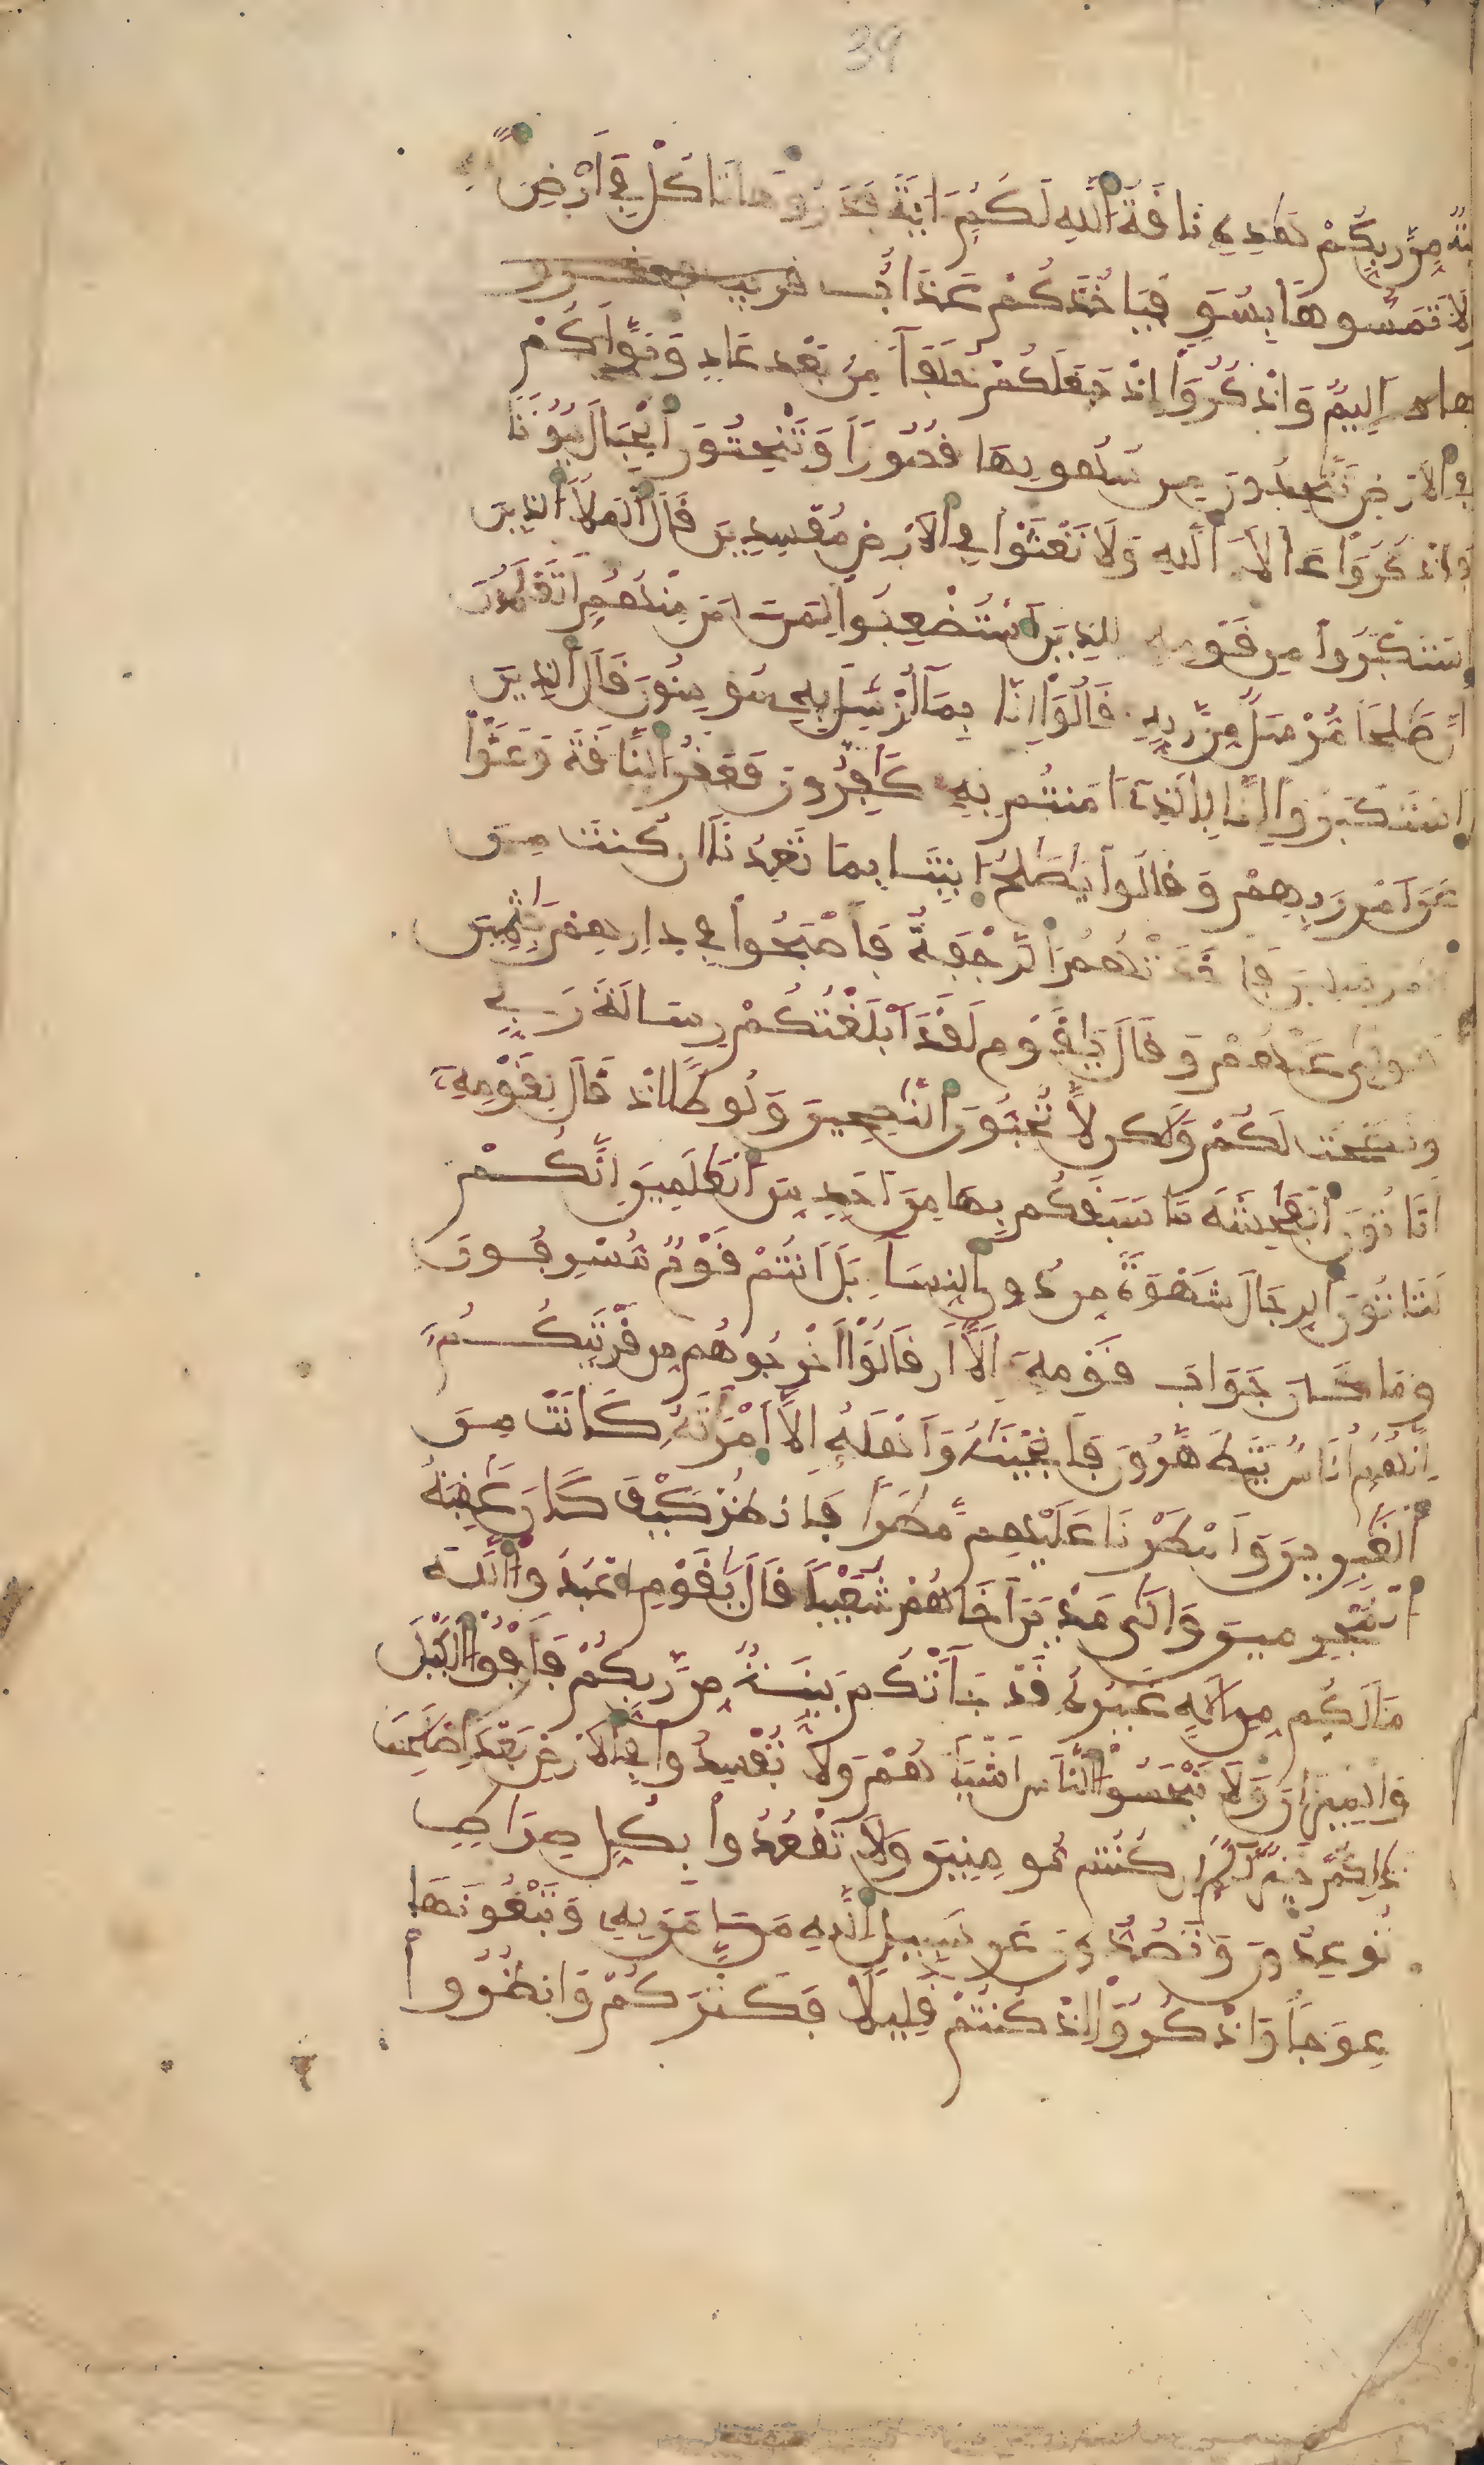 39
نَةٌ مِّن رَّبِّكُمْ هَٰذِهِ نَاقَةُ اللَّهِ لَكُمُ ءَايَةً فَذَرُوهَا تَاكُلْ فِي أَرْضِ
وَلَا تَمَسُّوهَا بِسُوءٍ فَيَاخُذَكُمْ عَذَابٌ قريب فعقرو
ها أَلِيمٌ وَاذْكُرُوا إِذْ جَعَلَكُمْ خُلَفَاءَ مِن بَعْدِ عَادٍ وَبَوَّأَكُمْ
فِي الَارْضِ تَتَّخِذُونَ مِن سُهُولِهَا قُصُورًا وَتَنْحِتُونَ الْجِبَالَ بُيُوتًا
وَاذْكُرُوا ءَالَاءَ اللَّهِ وَلَا تَعْثَوْا فِي الَارْضِ مُفْسِدِينَ قَالَ الْمَلَأُ الذِينَ
اسْتَكْبَرُوا مِن قَوْمِهِ لِلذِينَ اسْتُضْعِفُوا لِمَنَ امَنَ مِنْهُمُ أَتَعْلَمُونَ
أَنَّ صَٰلِحًا مُّرْسَلٌ مِّن رَّبِّهِ قَالُوا إِنَّا بِمَا أُرْسِلَ بِهِ مُومِنُونَ قَالَ الذِينَ
اسْتَكْبَرُوا إِنَّا بِالذِي ءَامَنتُم بِهِ كَٰفِرُونَ فَعَقَرُوا النَّاقَةَ وَعَتَوْا
عَنَ امْرِ رَبِّهِمْ وَقَالُوا يَٰصَٰلِحُ ايتِنَا بِمَا تَعِدُنَا إِن كُنتَ مِنَ
الْمُرْسَلِينَ فَأَخَذَتْهُمُ الرَّجْفَةُ فَأَصْبَحُوا فِي دَارِهِمْ جَٰثِمِينَ
فَتَوَلَّىٰ عَنْهُمْ وَقَالَ يَٰقَوْمِ لَقَدَ أَبْلَغْتُكُمْ رِسَالَةَ رَبِّي
وَنَصَحْتُ لَكُمْ وَلَٰكِن لَّا تُحِبُّونَ النَّٰصِحِينَ وَلُوطًا إِذْ قَالَ لِقَوْمِهِ
أَتَاتُونَ الْفَٰحِشَةَ مَا سَبَقَكُم بِهَا مِنَ أَحَدٍ مِّنَ الْعَٰلَمِينَ إِنَّكُمْ
لَتَاتُونَ الرِّجَالَ شَهْوَةً مِّن دُونِ النِّسَاءِ بَلَ أَنتُمْ قَوْمٌ مُّسْرِفُونَ
وَمَا كَانَ جَوَابَ قَوْمِهِ إِلَّا أَن قَالُوا أَخْرِجُوهُم مِّن قَرْيَتِكُمُ
إِنَّهُمُ أُنَاسٌ يَتَطَهَّرُونَ فَأَنجَيْنَٰهُ وَأَهْلَهُ إِلَّا امْرَأَتَهُ كَانَتْ مِنَ
الْغَٰبِرِينَ وَأَمْطَرْنَا عَلَيْهِم مَّطَرًا فَانظُرْ كَيْفَ كَانَ عَٰقِبَةُ
الْمُجْرِمِينَ وَإِلَىٰ مَدْيَنَ أَخَاهُمْ شُعَيْبًا قَالَ يَٰقَوْمِ اعْبُدُوا اللَّهَ
مَا لَكُم مِّنِ الَٰهٍ غَيْرُهُ قَدْ جَاءَتْكُم بَيِّنَةٌ مِّن رَّبِّكُمْ فَأَوْفُوا الْكَيْلَ
وَالْمِيزَانَ وَلَا تَبْخَسُوا النَّاسَ أَشْيَاءَهُمْ وَلَا تُفْسِدُوا فِي الَارْضِ بَعْدَ إِصْلَٰحِهَا
ذَٰلِكُمْ خَيْرٌ لَّكُمُ إِن كُنتُم مُّومِنِينَ وَلَا تَقْعُدُوا بِكُلِّ صِرَاطٍ
تُوعِدُونَ وَتَصُدُّونَ عَن سَبِيلِ اللَّهِ مَنَ امَنَ بِهِ وَتَبْغُونَهَا
عِوَجًا وَاذْكُرُوا إِذْ كُنتُمْ قَلِيلًا فَكَثَّرَكُمْ وَانظُرُوا